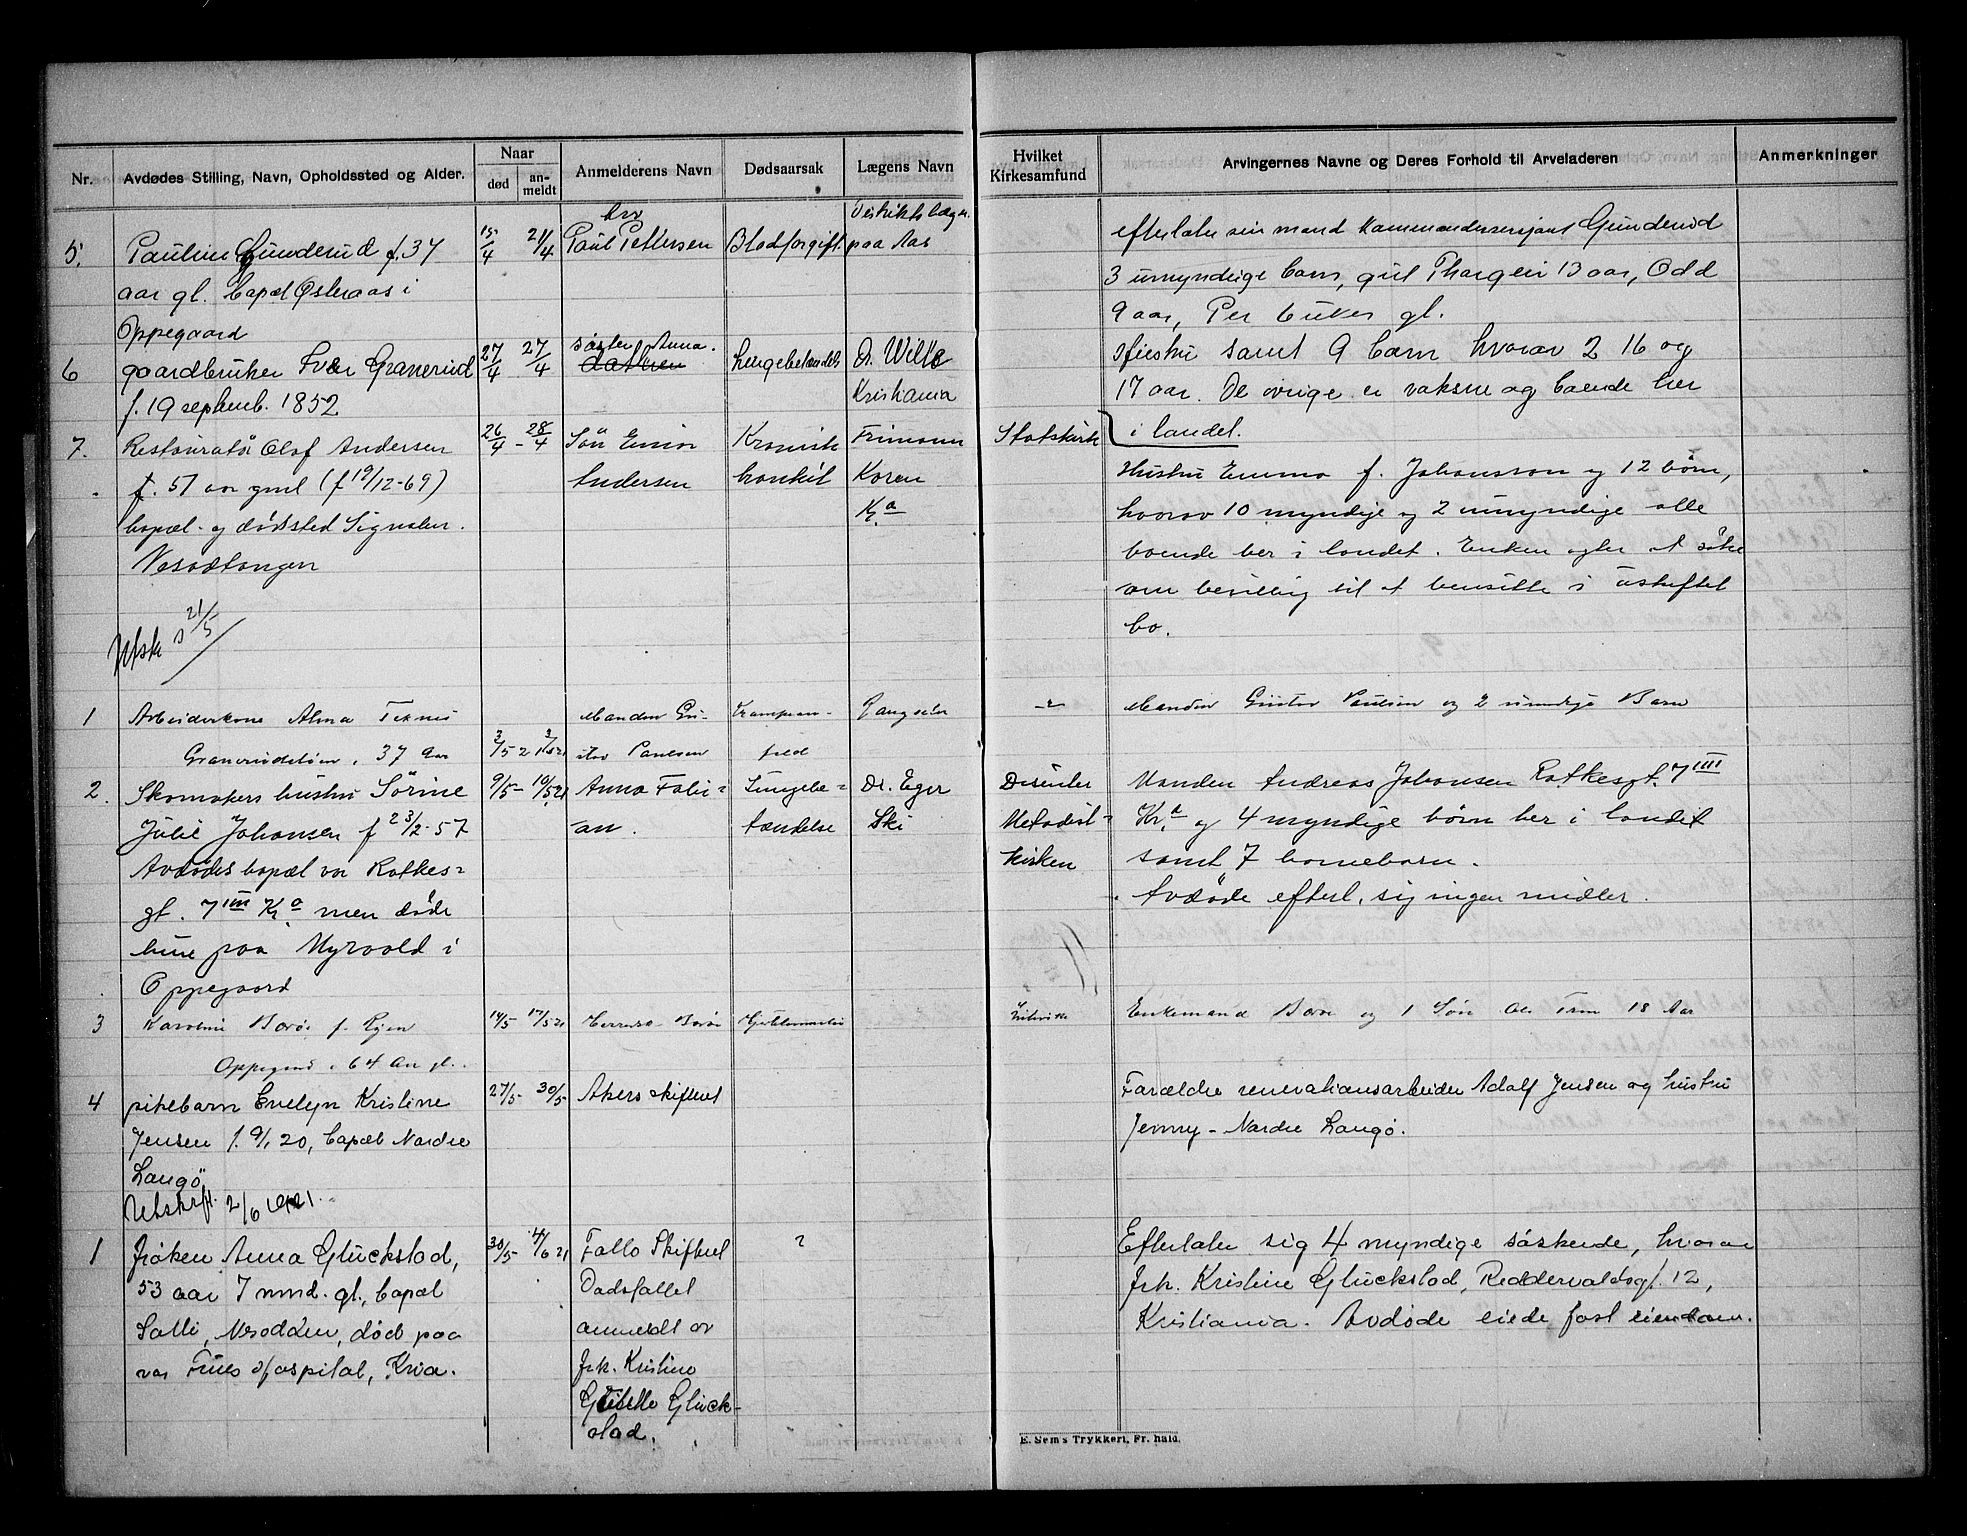 Nr.
Avdødes Stilling, Navn, Opholdssted og Alder.
Naar
død
an-
meldt
Anmelderens Navn
Dødsaarsak
Lægens Navn
Hvilket
Kirkesamfund
Arvingernes Navne og Deres Forhold til Arveladeren
Anmerkninger
5.
Pauline Gunderud f. 37
aar gl. bopæl Østeraas i
Oppegaard
15/4
21/4
bror
Paul Pettersen
Blodforgift
Distriktslægen
paa Aas
efterlater sin mand Kommandersersjant Gunderud
3 umyndige barn, gut Thorgeir 13 aar, Odd
9 aar, Per 6 uker gl.
6
gaardbruker Ivar Granerud
f. 19 septemb. 1852
27/4
27/4
søster Anna
Lungebetændels
Dr. Wille
Kristiania
Hustru samt 9 barn hvorav 2 16 og
17 aar. De øvrige er voksne og boende her
i landet.
7.
Restauratør Olaf Andersen
f. 51 aar gml (f 19/12-69)
bopæl- og dødssted Signalen.
Nesodtangen
26/4 - 28/4
Søn Einar
Andersen
Kronisk
bronkit
Frimann
Koren
Kra
Statskirk
Hustru Emma f. Johansson og 12 børn,
hvorav 10 myndige og 2 umyndige alle
boende her i landet. Enken agter at søke
om bevilling til at hensitte i uskiftet
bo.
Utsk 21/5
1
Arbeiderkone Alma
37 Aar
3/5 21
3/5 21
Manden Gu-
stav Paulsen
Manden Gustav Paulsen og 2 umyndige Barn
2.
Skomakers hustru Sörine
Julie Johansen f 23/2-57
Avdødes bopæl var Ratkes-
gt. 7 IIII Kra men døde
hine paa Myrvold i
Oppegaard
9/5- 10/5 21
Anna Fabi-
an.
Lungebe-
tændelse
Dr. Eger
Ski
Disenter
Metodist-
kirken
Manden Andreas Johansen Ratkesgt. 7 IIII
Kra og 4 myndige børn her i landet
samt 7 barnebarn.
Avdøde efterl. sig ingen midler.
3
Karoline Borøe f.
Oppegard 64 Aar gl.
14/5
17/5 21
Borøe
Enkemand Borøe og 1 Søn 18 Aar
4
pikebarn Evelyn Kristine
Jensen f. 9/1 20, bopæl Nordre
Langø
Utskrift 2/6 1921.
27/5- 30/5
Akers skifteret
Forældre renovationsarbeider Adolf Jensen og hustru
Jenny - Nordre Langø.
1
frøken Anna Glückstad,
53 aar 7 mnd. gl., bopæl
Nesodden, død paa
vor Frues Hospital, Kria.
30/5-
4/6 21
Follo Skifteret
Dødsfallet
anmeldt av
frk. Kristine
Giselle Glück-
stad.
?
Efterlater sig 4 myndige søskende, hvorav
frk. Kristine Glückstad, Reddervoldsgt. 12,
Kristiania. Avdøde eiede fast eiendom.
E. Sem's Trykkeri, Fr.hald.